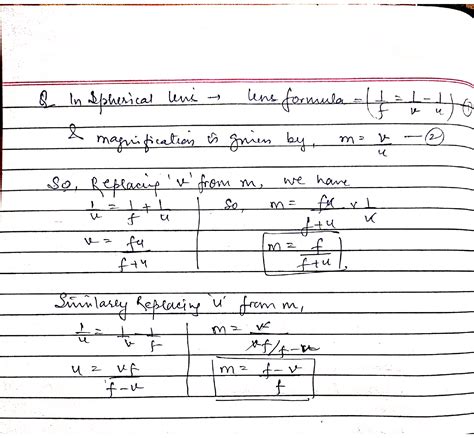 Q In Spherical lens → lens formula - (1/f = 1/v - 1/u) ①
& magnification is given by, m = v/u — ②
So, Replacing 'v' from m, we have
1/v = 1/f + 1/u | So, m = fu/f+u × 1/u
v = fu/f+u | m = f/f+u
Similarly Replacing 'u' from m,
1/u = 1/v - 1/f | m = v/vf/f-v
u = vf/f-v | m = f-v/f